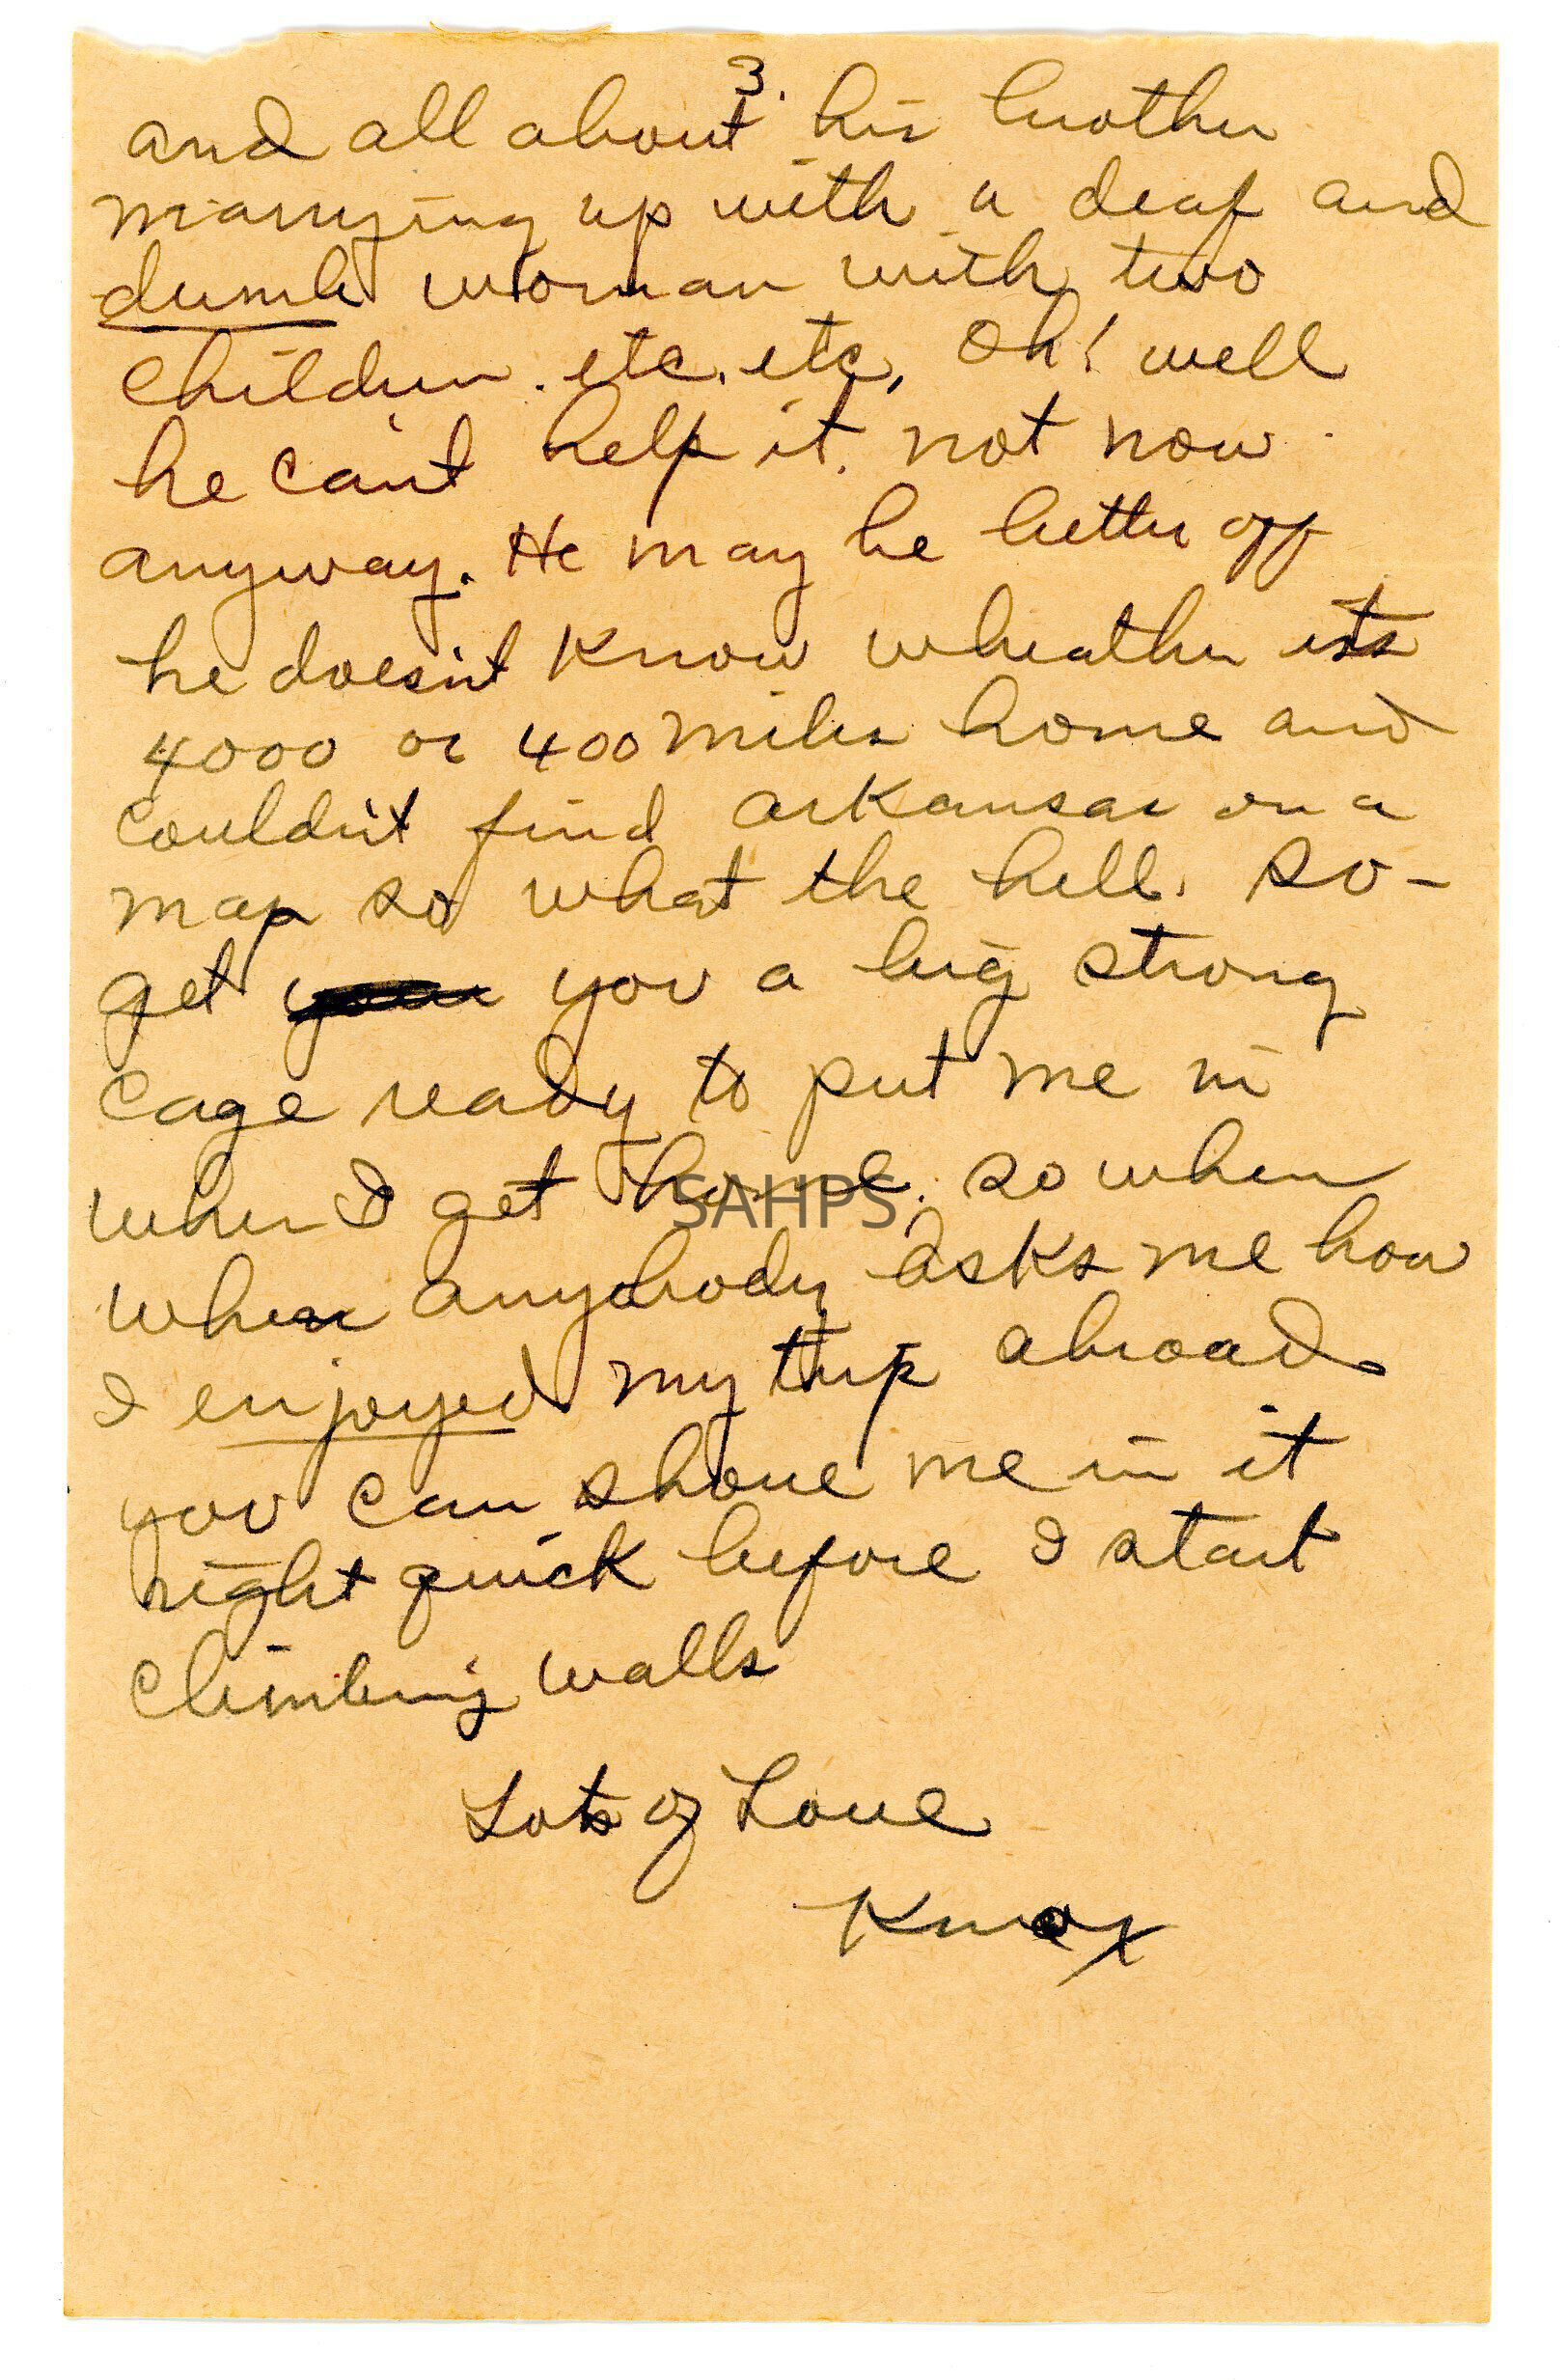 3.
and all about his brother
marrying up with a deaf and
dumb woman with two
children. etc. etc, Oh! well
he can't help it. not now
anyway. He may be better off
he doesn't know wheather its
4000 or 400 miles home and
couldn't find arkansas on a
map so what the hell. so-
get you a big strong
cage ready to put me in
when I get home. so when
SAHPS
when anybody asks me how
I enjoyed my trip abroad.
you can shove me in it
right quick before I start
climbing walls
Lots of Love
Knox